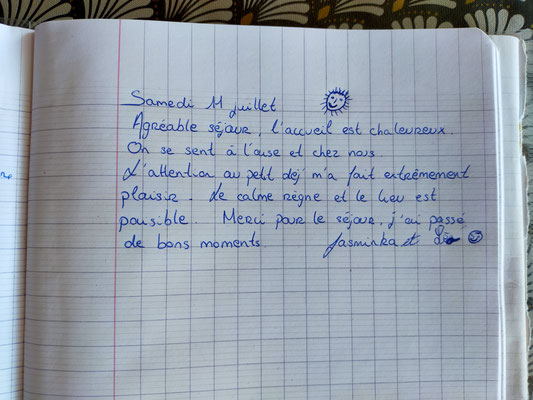 Samedi 11 juillet
Agréable séjour, l'accueil est chaleureux.
On se sent à l'aise et chez nous.
L'attention au petit dej' m'a fait extrêmement
plaisir. Le calme règne et le lieu est
paisible. Merci pour le séjour, j'ai passé
de bons moments. Jasminka et